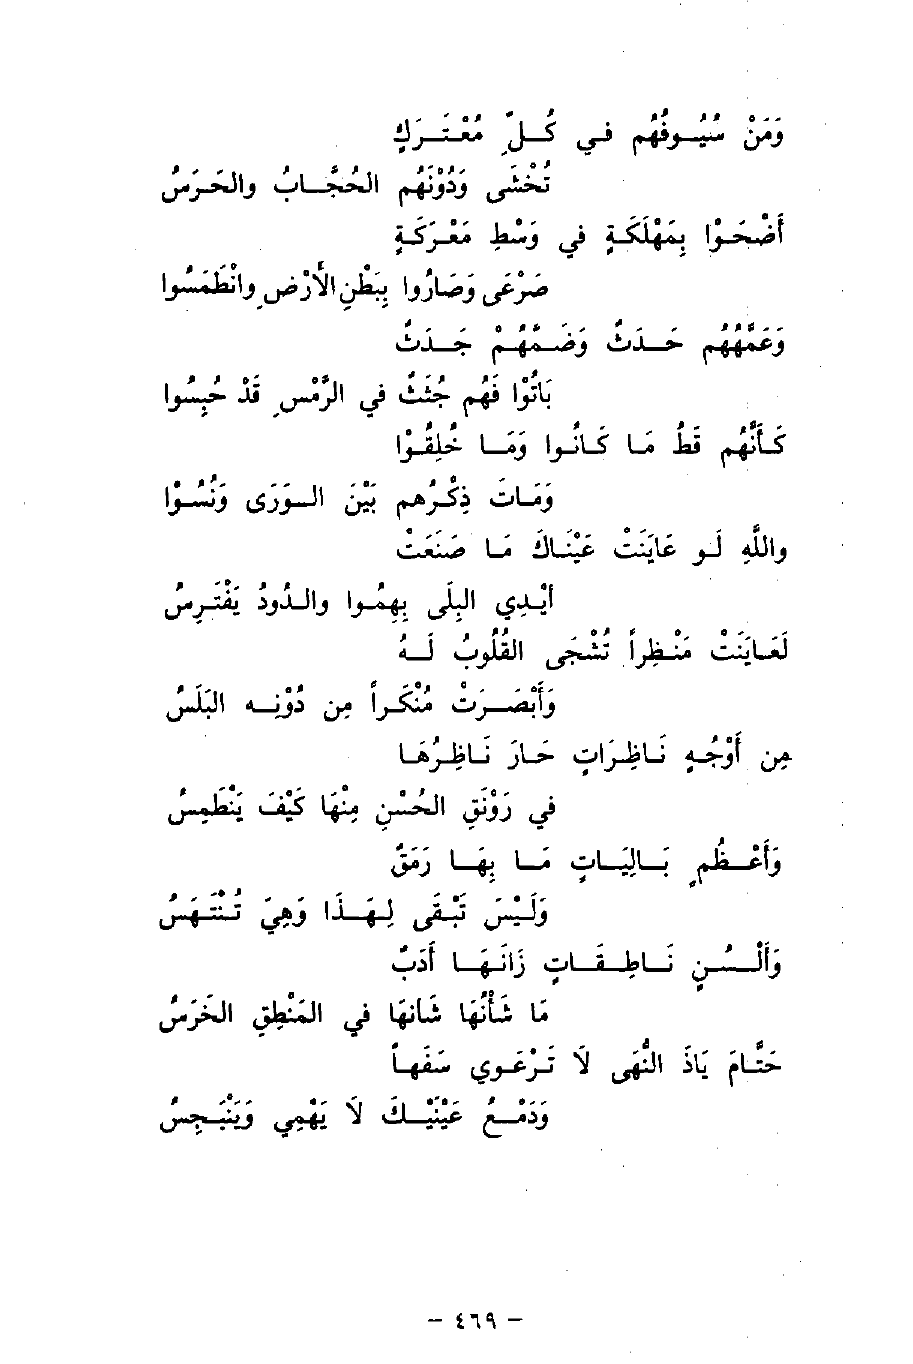 وَمَنْ سُيُوفُهُم في كُلِّ مُعْتَرَكٍ
تُخْشَى وَدُوْنَهُم الحُجَّابُ والحَرَسُ
أَضْحَوْا بِمَهْلَكَةٍ في وَسْطِ مَعْرَكَةٍ
صَرْعَى وَصَارُوا بِبَطْنِ الأَرْضِ وانْطَمَسُوا
وَعَمَّهُهُم حَدَثٌ وَضَمَّهُمْ جَدَثٌ
بَاتُوْا فَهُم جُثَثٌ في الرَّمْسِ قَدْ حُبِسُوا
كَأَنَّهُم قَطُّ مَا كَانُوا وَمَا خُلِقُوْا
وَمَاتَ ذِكْرُهم بَيْنَ الوَرَى وَنُسُوْا
واللَّهِ لَو عَايَنَتْ عَيْنَاكَ مَا صَنَعَتْ
أَيْدِي البِلَى بِهِمُوا والدُودُ يَفْتَرِسُ
لَعَايَنَتْ مَنْظِراً تُشْجَى القُلُوبُ لَهُ
وَأَبْصَرَتْ مُنْكَراً مِن دُوْنِه البَلَسُ
مِن أَوْجُهٍ نَاظِرَاتٍ حَارَ نَاظِرُهَا
في رَوْنَقِ الحُسْنِ مِنْهَا كَيْفَ يَنْطَمِسُ
وَأَعْظُمٍ بَالِيَاتٍ مَا بِهَا رَمَقٌ
وَلَيْسَ تَبْقَى لِهَذَا وَهِيَ تُنْتَهَسُ
وَأَلْسُنٍ نَاطِقَاتٍ زَانَهَا أَدَبٌ
مَا شَأْنُهَا شَانَهَا في المَنْطِقِ الخَرَسُ
حَتَّامَ يَاذَ النُّهَى لَا تَرْعَوي سَفَهاً
وَدَمْعُ عَيْنَيْكَ لَا يَهْمِي وَيَنْبَجِسُ
- ٤٦٩ -